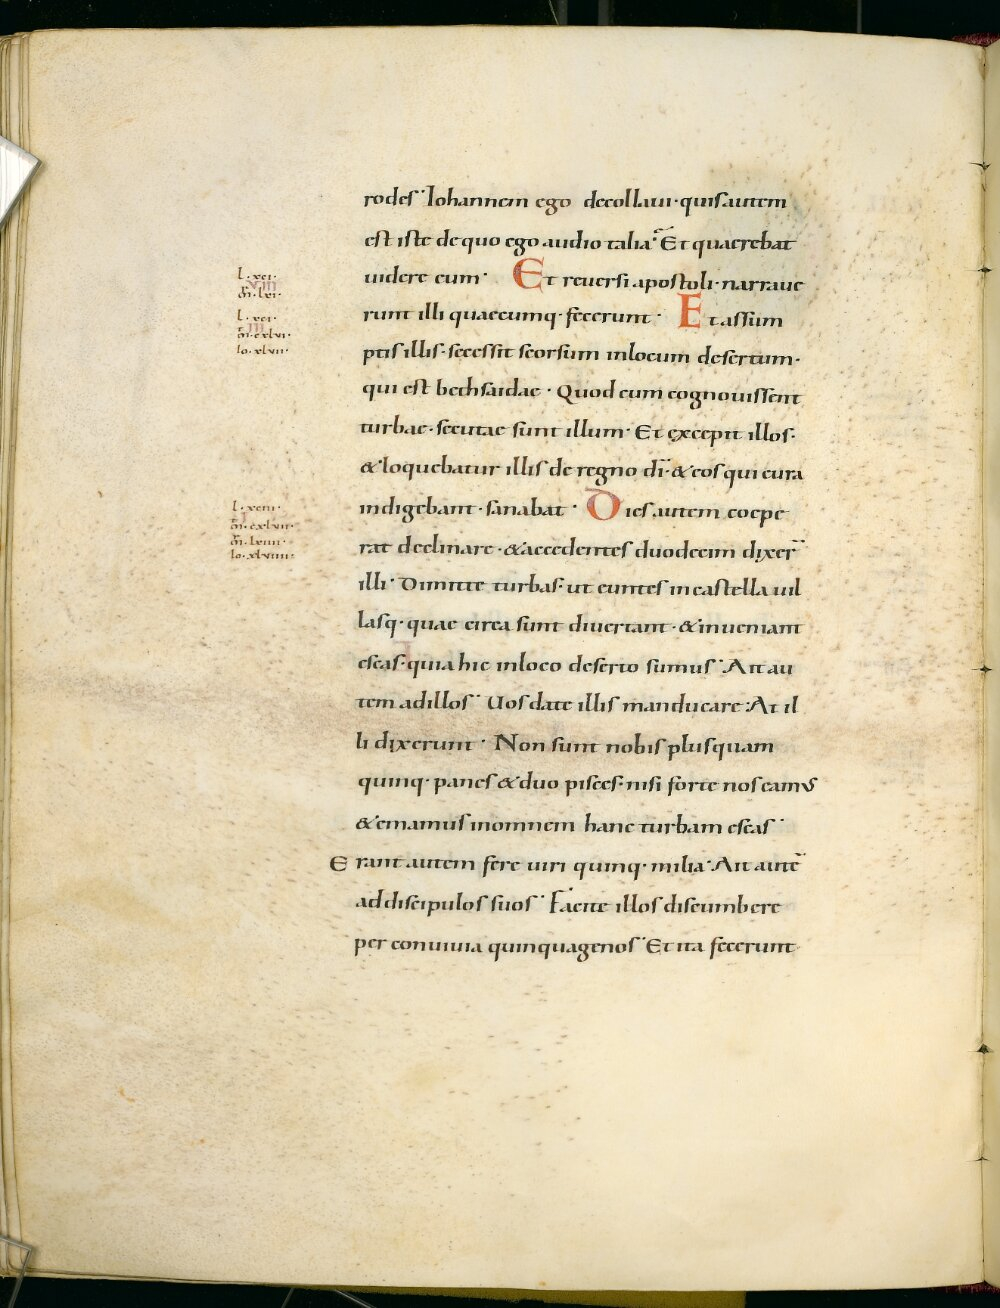 rodes· Iohannem ego decollaui· quis autem
est iste de quo ego audio talia· Et quaerebat
uidere eum· Et reuersi apostoli· narraue
runt illi quaecumq· fecerunt· Et assum
ptis illis· secessit seorsum inlocum desertum·
qui est bethsaidae· Quod cum cognouissent
turbae· secutae sunt illum· Et excepit illos·
&loquebatur illis de regno dī· &eos qui cura
indigebant· sanabat· Dies autem coepe
rat declinare· &accedentes duodecim dixer̄
illi· Dimitte turbas· ut euntes incastella uil
lasq· quae circa sunt diuertant· &inueniant
escas· quia hic inloco deserto sumus· Ait au
tem adillos· Uos date illis manducare· At il
li dixerunt· Non sunt nobis plusquam
quinq· panes &duo pisces· nisi forte nos eamus
&emamus inomnem hanc turbam escas·
Erant autem fere uiri quinq· milia· Ait autē
addiscipulos suos· Facite illos discumbere
per conuiuia quinquagenos· Et ita fecerunt
l· xci·
l· xci·
io· xlvii·
l· xciii·
io· xlviiii·